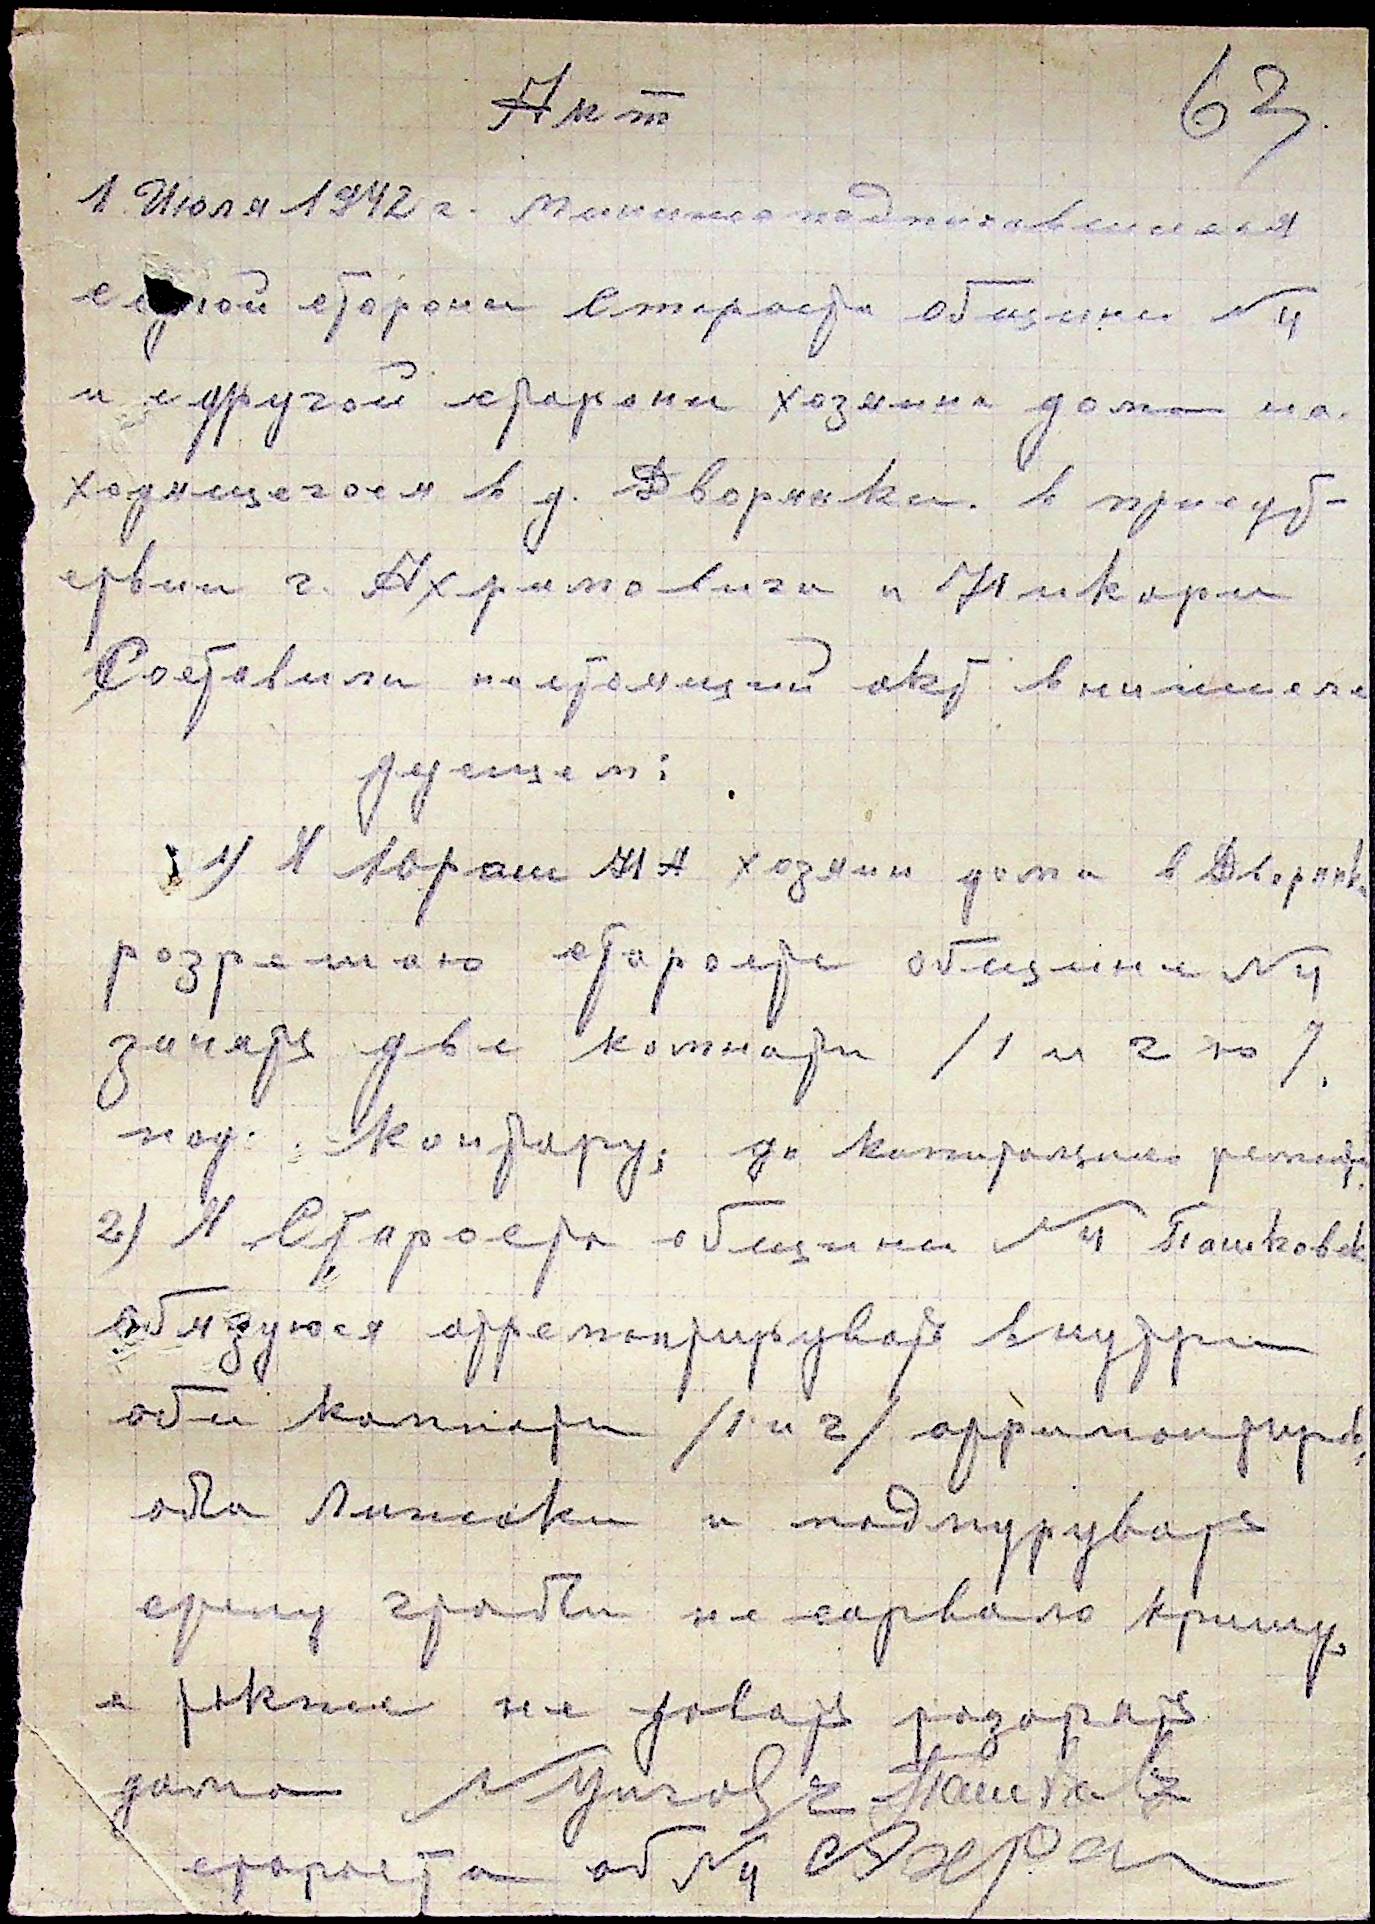 Акт
63
1 Июля 1942 г. Мы ниже подписавшиеся
с одной стороны Староста общины №4
и с другой стороны хозяина дома на-
ходящегося в д. Дворянки. в присут-
ствии г. Ахрамовича и
Составили настоящий акт в нижесле
дующем:
1) Я Юраш ИА хозяин дома в Дворянк
розрешаю старосте общине №4
занять две комнаты /1 и 2 ю/.
под контору, до
2) Я Староста общины №4 Пашковск
обязуюся отремонтирувать внутри
оби комнаты /1 и 2/ отримонтиров
оба и подмурувать
стену чтобы не сорвало крышу,
а также не довать розорять
дома
староста об №4